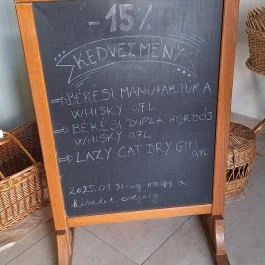 -15%
KEDVEZMÉNY
⇒ BÉKÉSI MANUFAKTURA
WHISKY 0,7L
⇒ BÉKÉSI DUPLA HORDÓS
WHISKY 0,7L
⇒ LAZY CAT DRY GIN 0,7L
31-ig vagy a
készlet erejéig